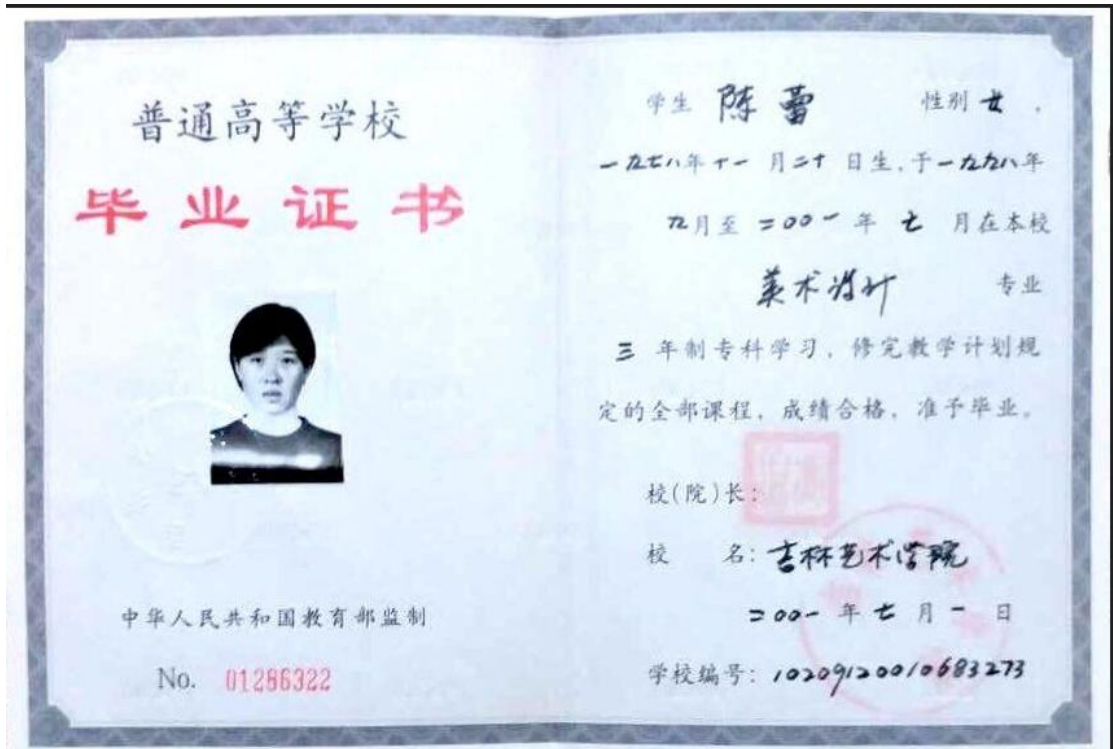 普通高等学校
毕业证书
中华人民共和国教育部监制
No. 01286322
学生 陈蕾 性别 女，
一九七八年十一月二十日生，于一九九八年
九月至二00一年七月在本校
美术设计 专业
三年制专科学习，修完教学计划规
定的全部课程，成绩合格，准予毕业。
校(院)长：
校 名：吉林艺术学院
二00一年七月一日
学校编号：10209120010683273